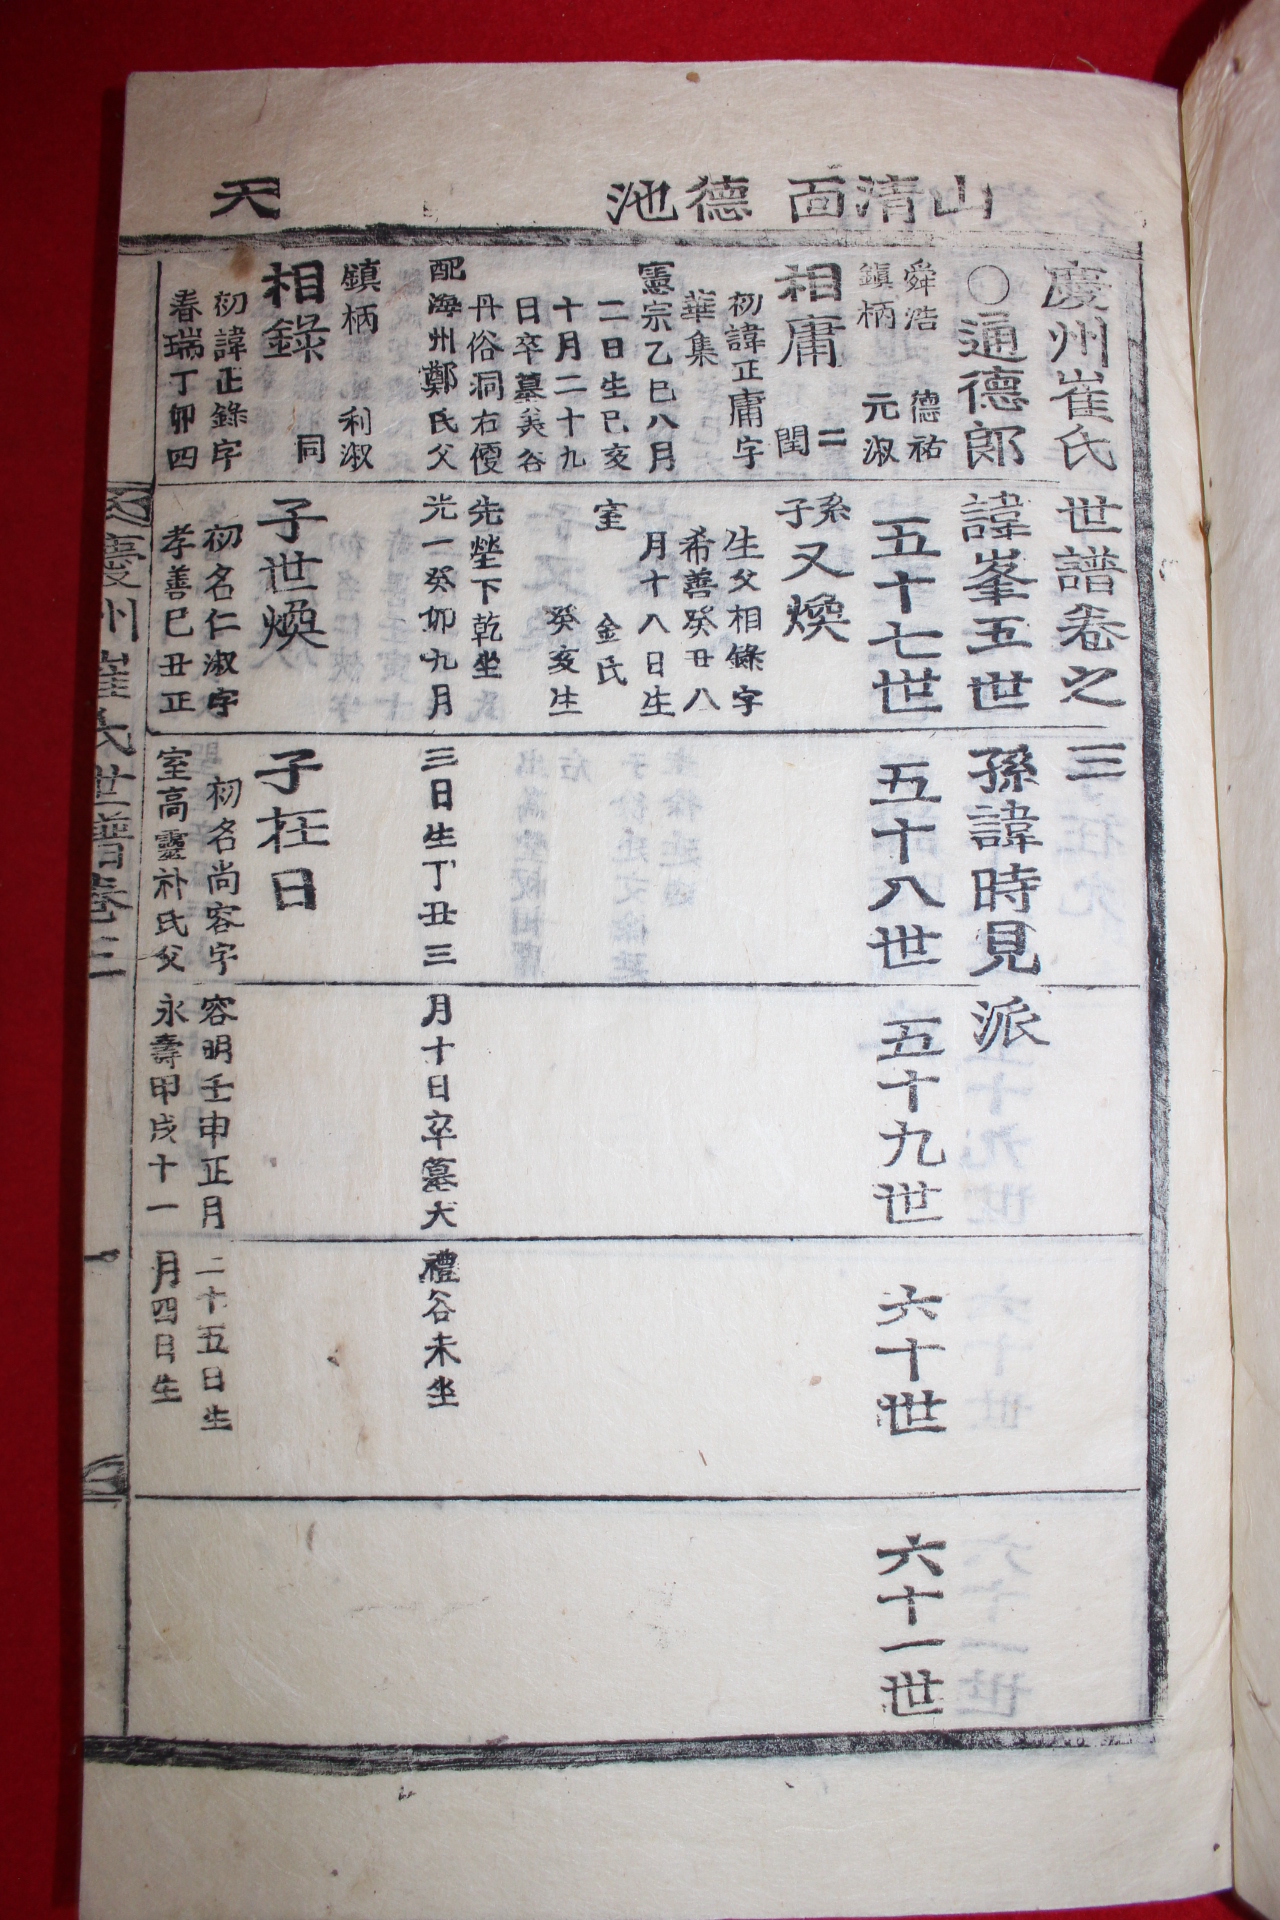 山清面 德池
天
慶州崔氏世譜卷之三
○通德郎諱峯五世孫諱時見派
舜浩 德祐
鎭柄 元淑
五十七世
五十八世
五十九世
六十世
六十一世
相庸 二 閏
初諱正庸字
華集
憲宗乙巳八月
二日生己亥
十月二十九
日卒墓美谷
丹俗洞右優
配海州鄭氏父
鎭柄 利淑
系子又煥
生父相錄字
希善癸丑八
月十八日生
室 金氏
癸亥生
先塋下乾坐
光一癸卯九月三日生丁丑三月十日卒墓大禮谷未坐
相錄 同
初諱正錄字
春瑞丁卯四
子世煥
初名仁淑字
孝善己丑正
子在日
初名尚容字容明壬申正月二十五日生
室高靈朴氏父永壽甲戌十一月四日生
慶州崔氏世譜卷三
一